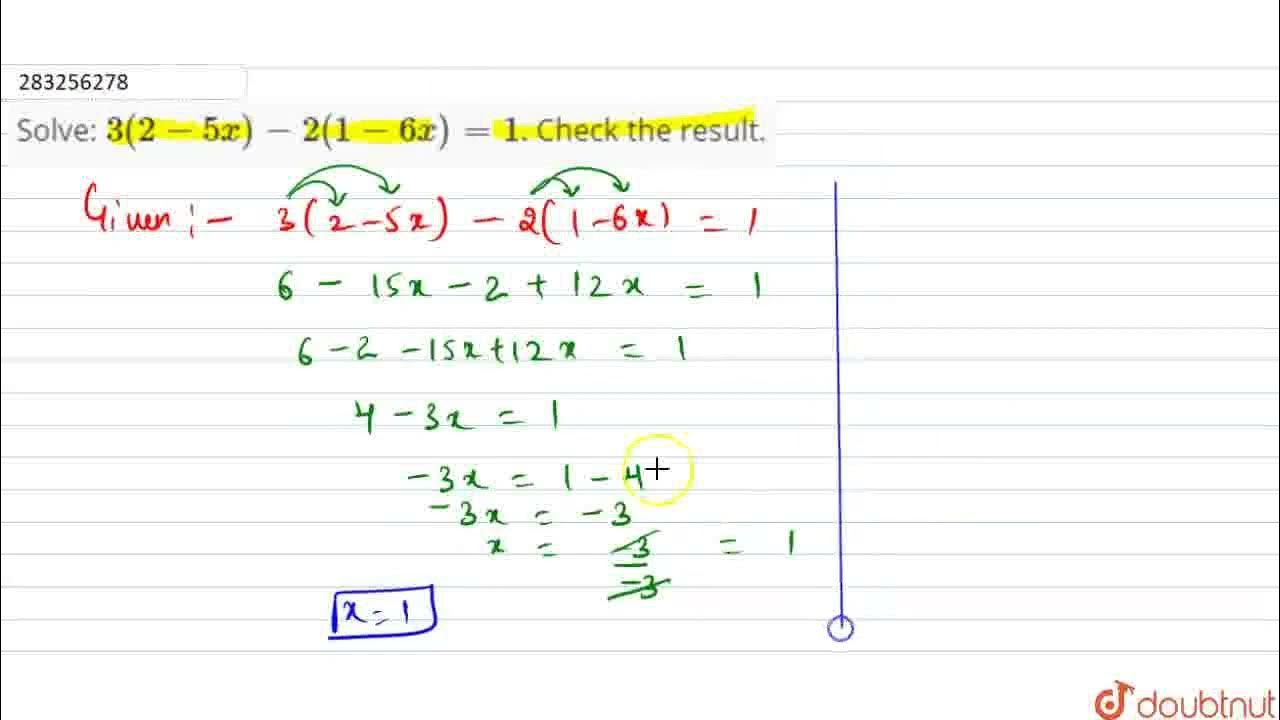 283256278
Solve: 3(2 − 5x) − 2(1 − 6x) = 1. Check the result.
Given :- 3(2-5x) - 2(1-6x) = 1
6 - 15x - 2 + 12x = 1
6 - 2 - 15x + 12x = 1
4 - 3x = 1
-3x = 1 - 4
-3x = -3
x = -3/-3 = 1
x = 1
doubtnut